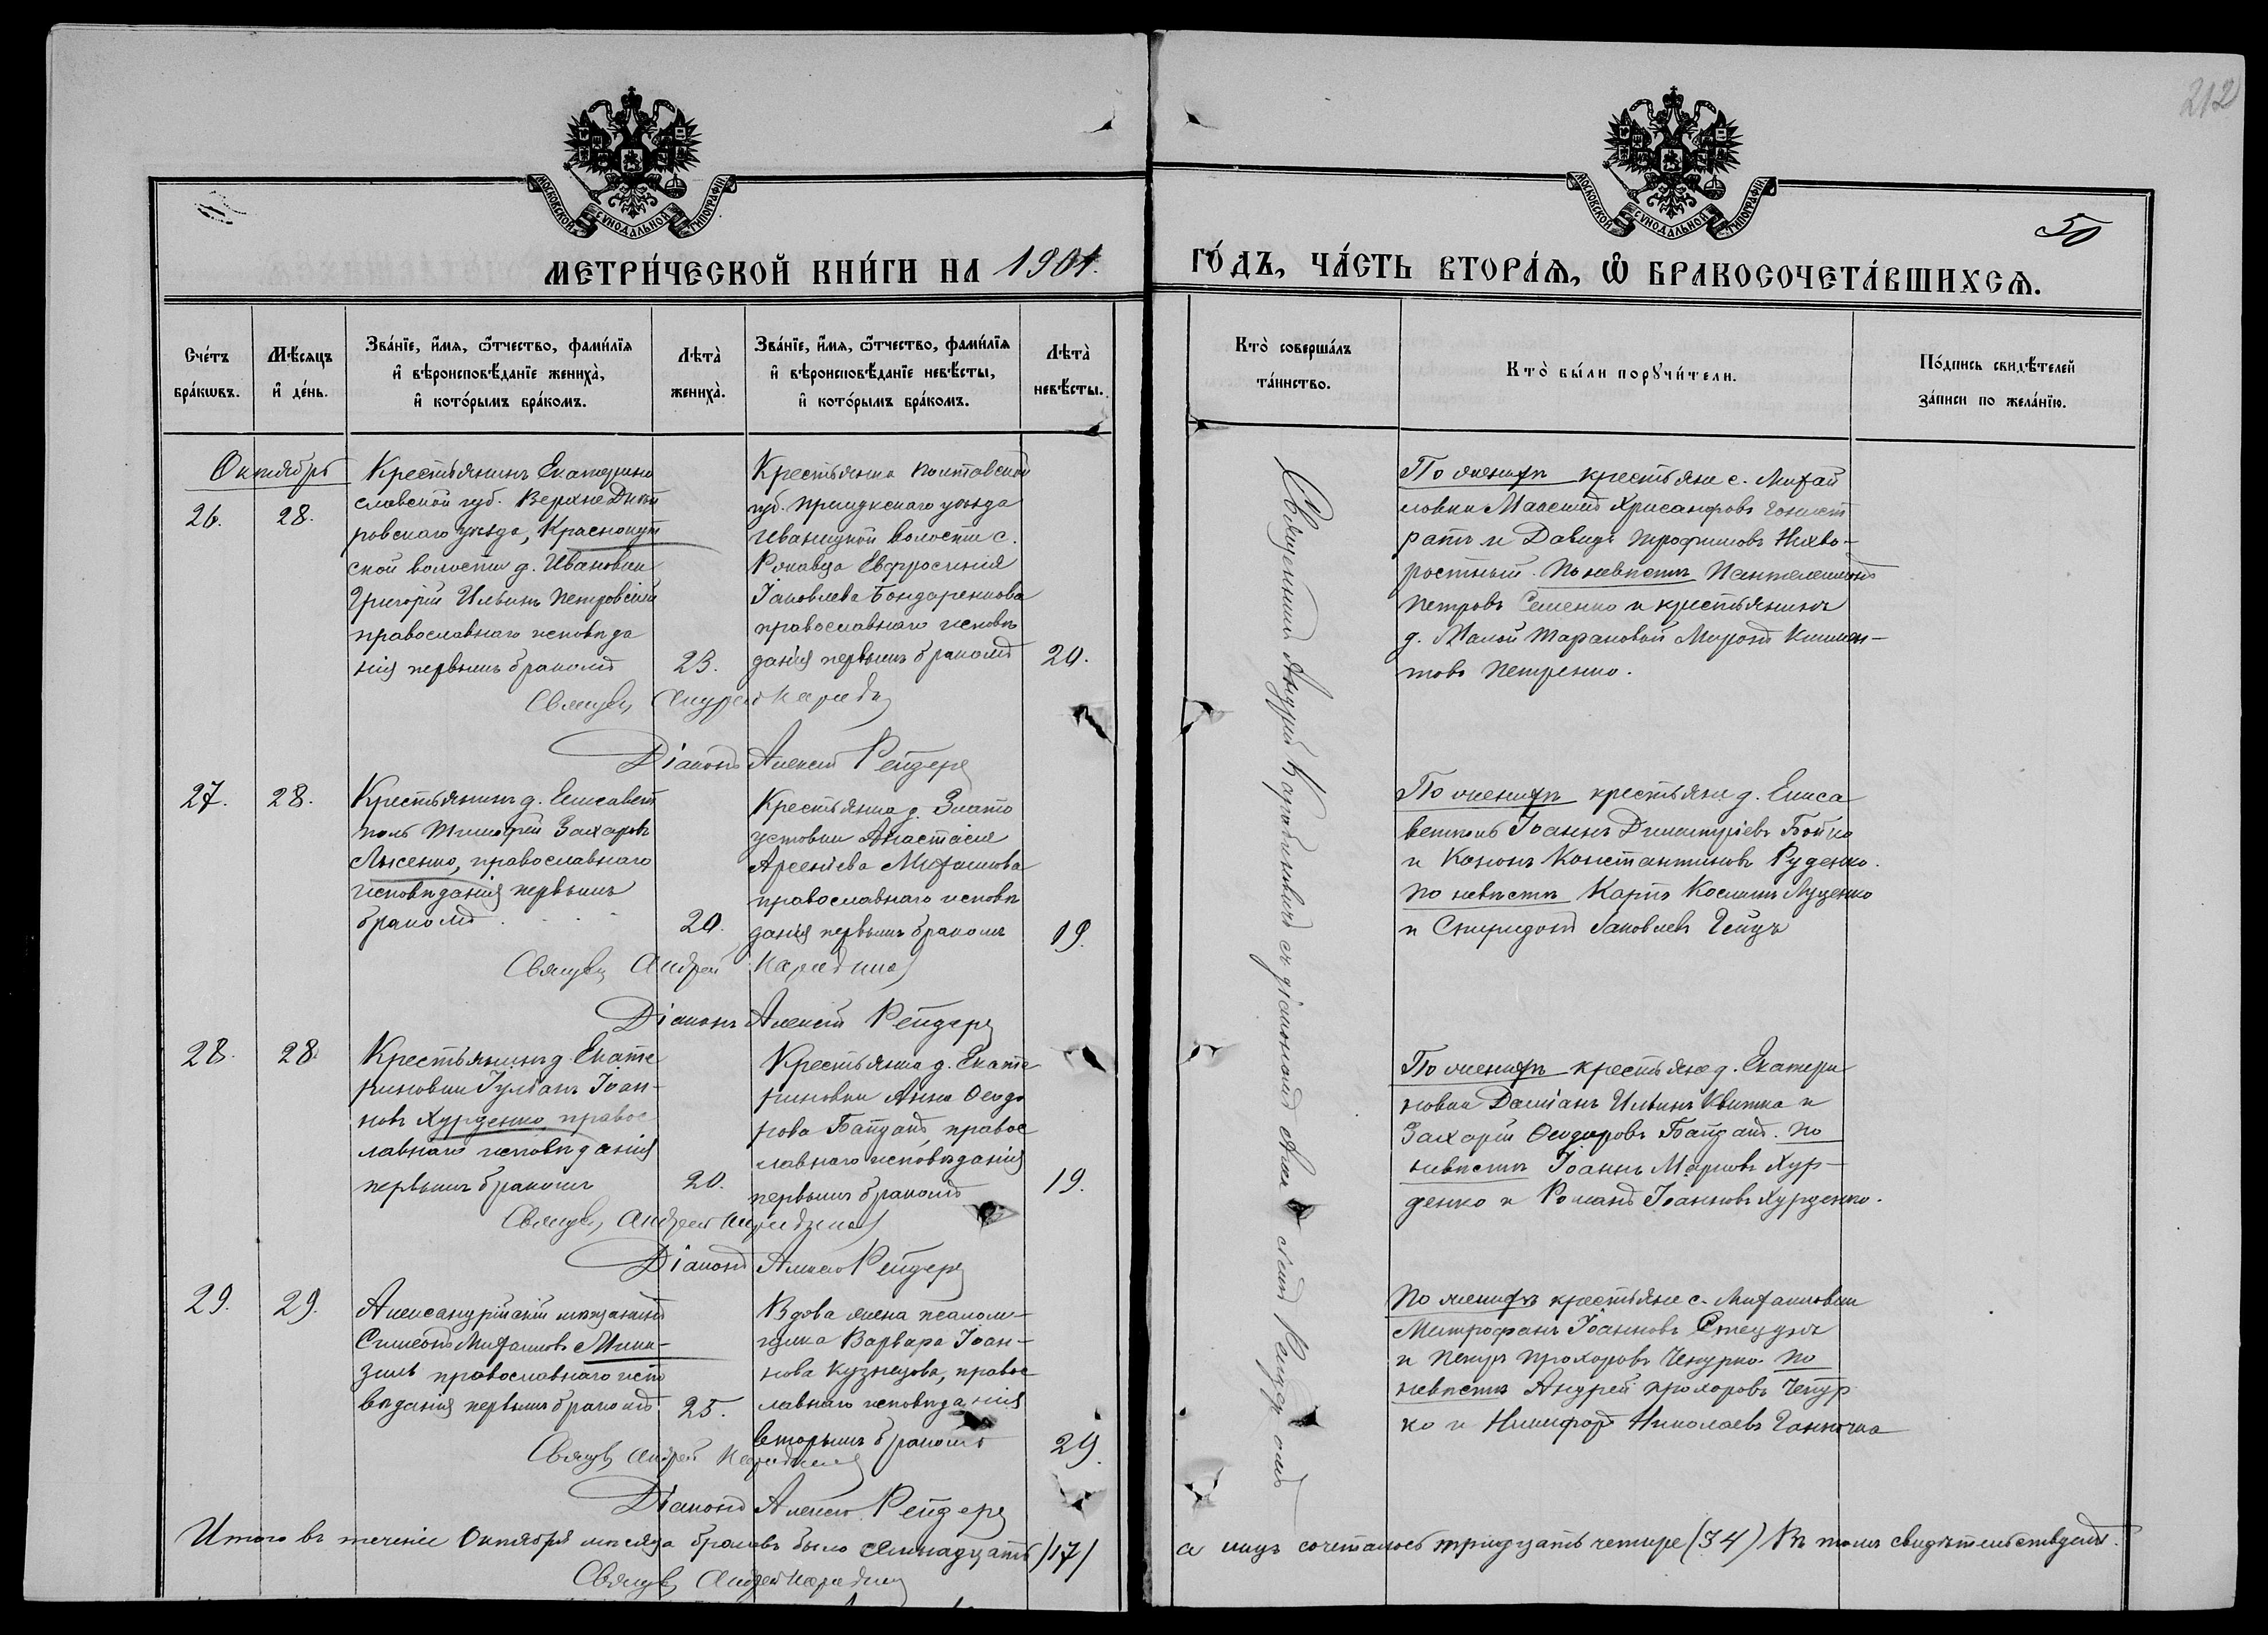 212
50
МОСКОВСКОЙ СУНОДАЛЬНОЙ ТИПОГРАФІИ
МОСКОВСКОЙ СУНОДАЛЬНОЙ ТИПОГРАФІИ
МЕТРИ́ЧЕСКОЙ КНИ́ГИ НА 1901.
ГО́ДЪ, ЧА́СТЬ ВТОРА́Ѧ, Ѡ҆ БРАКОСОЧЕТА́ВШИХСѦ.
Сче́тъ бра́кѡвъ.
Мѣ́сяцъ и҆ де́нь.
Зва́нїе, и҆́мѧ, ѻ҆́тчество, фами́лїѧ и҆ вѣроисповѣ́данїе жениха̀, и҆ кото́рымъ бра́комъ.
Лѣта̀ жениха̀.
Зва́нїе, и҆́мѧ, ѻ҆́тчество, фами́лїѧ и҆ вѣроисповѣ́данїе невѣ́сты, и҆ кото́рымъ бра́комъ.
Лѣта̀ невѣ́сты.
Кто̀ соверша́лъ та́инство.
Кто̀ бы́ли порꙋчи́тели.
По́дпись свидѣ́телей за́писи по жела́нїю.
Октябрь
26.
28.
Крестьянинъ Екатерино
славской губ. ВерхнеДнѣп
ровскаго уѣзда, Краснокут
ской волости д. Ивановки
Григорій Ильинъ Петровскій
православнаго исповѣда
нія первымъ бракомъ
23.
Крестьянка Полтавской
губ. Прилукскаго уѣзда
Иваницкой волости с.
Рожавца Евфросинія
Іаковлева Бондаренкова
православнаго исповѣ
данія первымъ бракомъ
20.
По женихѣ крестьяне с. Михай
ловки Хрисанфовъ
и Давидъ Трофимовъ Нихво-
ростный. По невѣстѣ Пантелеимонъ
Петровъ Семенко и крестьянинъ
д. Малой Тарановой Миронъ Климен-
товъ Петренко.
Священ. Андрей
Діаконъ Алексѣй Рейдеръ
Священникъ Андрей съ діакономъ Рейдеромъ
27.
28.
Крестьянинъ д. Елисавет
поль Тимофей Захаровъ
Лысенко, православнаго
исповѣданія первымъ
бракомъ
20.
Крестьянка д. Злато
устовки Анастасія
Арсеніева Михайлова
православнаго исповѣ
данія первымъ бракомъ
19.
По женихѣ крестьяне д. Елиса
ветполь Іоаннъ Димитріевъ Бойко
и Кононъ Константиновъ Руденко.
По невѣстѣ Карпъ Косминъ Луценко
и Спиридонъ Іаковлевъ
Священ. Андрей
Діаконъ Алексѣй Рейдеръ
28.
28.
Крестьянинъ д. Екате
риновки Іуліанъ Іоан-
новъ Хурденко, правос
лавнаго исповѣданія
первымъ бракомъ
20.
Крестьянка д. Екате
риновки Анна Ѳеодо
рова Байдакъ, правос
лавнаго исповѣданія
первымъ бракомъ
19.
По женихѣ крестьяне д. Екатери
новки Даміанъ Ильинъ Квитка и
Захарій Ѳеодоровъ Байдакъ. По
невѣстѣ Іоаннъ Марковъ Хур-
денко и Романъ Іоанновъ Хурденко.
Священ. Андрей
Діаконъ Алексѣй Рейдеръ
29.
29.
Александрійскій мѣщанинъ
Симеонъ Михайловъ
православнаго испо
вѣданія первымъ бракомъ
25.
Вдова жена псалом-
щика Варвара Іоан-
нова Кузнецова, правос
лавнаго исповѣданія
вторымъ бракомъ
29.
По женихѣ крестьяне с. Михайловки
Митрофанъ Іоанновъ
и Петръ Прохоровъ Чепурко. По
невѣстѣ Андрей Прохоровъ Чепур
ко и Никифоръ Николаевъ
Священ. Андрей
Діаконъ Алексѣй Рейдеръ
Итого въ теченіе Октября мѣсяца браковъ было семнадцать /17/
а лицъ сочеталось тридцать четыре (34) Въ томъ свидѣтельствуемъ.
Священ. Андрей